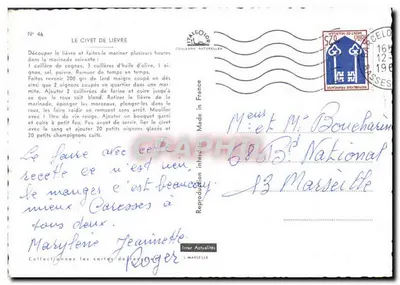 N° 46
LE CIVET DE LIEVRE
Découper le lièvre et faites-le mariner plusieurs heures
dans la marinade suivante :
1 cuillère de cognac, 3 cuillères d'huile d'olive, 1 oi-
gnon, sel, poivre. Remuer de temps en temps.
Faites revenir 200 gr de lard maigre coupé en dés
ainsi que 2 oignons coupés en quartier dans une mar-
mite. Ajouter 2 cuillerées de farine et cuire jusqu'à
ce que le roux soit blond. Retirer le lièvre de la
marinade, éponger les morceaux, plongez-les dans le
roux, les faire cuire en les remuant bien. Mouiller
avec 1 litre de vin rouge. Ajouter un bouquet garni
et cuire à petit feu. Peu avant de servir, lier le civet
avec le sang et ajouter 20 petits oignons glacés et
20 petits champignons cuits.
Le faire avec cette
recette ce n'est rien,
le manger c'est beaucoup
mieux Caresses à
tous deux.
Marylène Jeannette
Roger
Collectionnez les cartes de
Reproduction Made in France
Inter Actualités
MARSEILLE
Meurs et Mme Boucharin
68 Bd National
13 Marseille